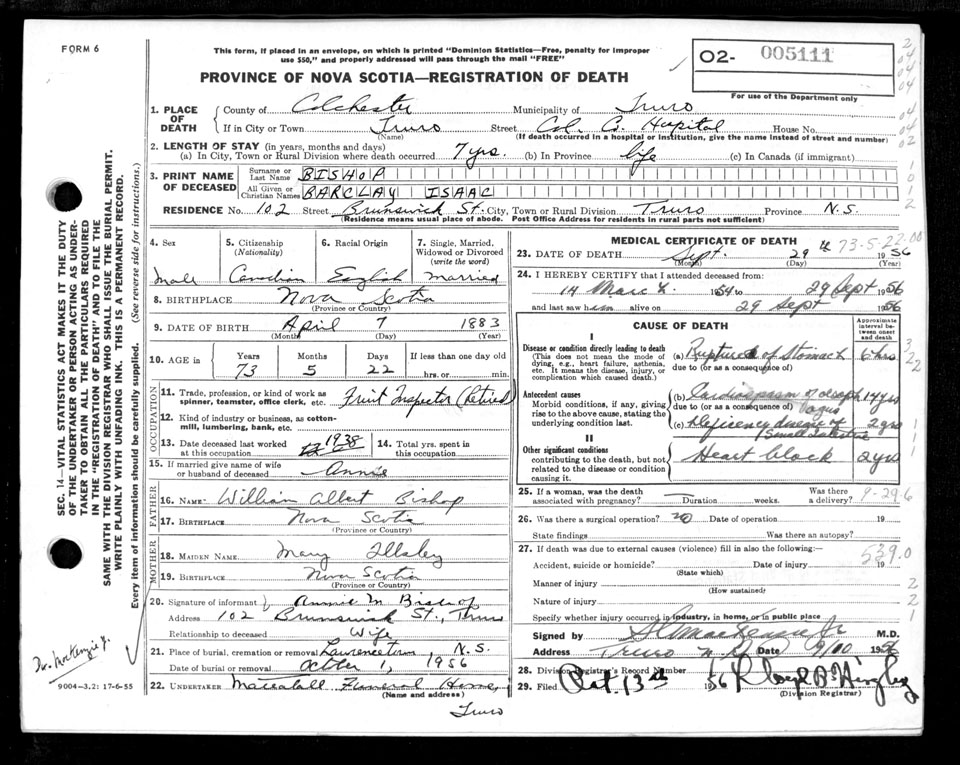 FORM 6
This form, if placed in an envelope, on which is printed "Dominion Statistics—Free, penalty for improper
use $50," and properly addressed will pass through the mail "FREE"
O2- 005111
For use of the Department only
PROVINCE OF NOVA SCOTIA—REGISTRATION OF DEATH
1. PLACE OF DEATH County of Colchester Municipality of Truro
If in City or Town Truro Street Col. Co. Hospital House No.
(Name) (If death occurred in a hospital or institution, give the name instead of street and number)
2. LENGTH OF STAY (in years, months and days)
(a) In City, Town or Rural Division where death occurred 7 yrs. (b) In Province life (c) In Canada (if immigrant)
3. PRINT NAME OF DECEASED Surname or Last Name BISHOP
All Given or Christian Names BARCLAY ISAAC
RESIDENCE No. 102 Street Brunswick St. City, Town or Rural Division Truro Province N.S.
(Residence means usual place of abode. Post Office Address for residents in rural parts not sufficient)
4. Sex 5. Citizenship (Nationality) 6. Racial Origin 7. Single, Married, Widowed or Divorced (write the word)
Male Canadian English Married
8. BIRTHPLACE Nova Scotia
(Province or Country)
9. DATE OF BIRTH April 7 1883
(Month) (Day) (Year)
10. AGE in Years Months Days If less than one day old
73 5 22 hrs. or min.
OCCUPATION
11. Trade, profession, or kind of work as spinner, teamster, office clerk, etc. Fruit Inspector (Retired)
12. Kind of industry or business, as cotton-mill, lumbering, bank, etc.
13. Date deceased last worked at this occupation 1938 14. Total yrs. spent in this occupation
15. If married give name of wife or husband of deceased Annie
FATHER
16. NAME William Albert Bishop
17. BIRTHPLACE Nova Scotia
(Province or Country)
MOTHER
18. MAIDEN NAME Mary Illsley
19. BIRTHPLACE Nova Scotia
(Province or Country)
20. Signature of informant Annie M Bishop
Address 102 Brunswick St., Truro
Relationship to deceased Wife
21. Place of burial, cremation or removal Lawrencetown, N.S.
Date of burial or removal October 1, 1956
22. UNDERTAKER Mattatall Funeral Home,
(Name and address)
Truro
MEDICAL CERTIFICATE OF DEATH
73-5-22.00
23. DATE OF DEATH Sept. 29 1956
(Month) (Day) (Year)
24. I HEREBY CERTIFY that I attended deceased from
14 March 1954 to 29 Sept 1956
and last saw him alive on 29 Sept 1956
CAUSE OF DEATH
Approximate interval between onset and death
I
Disease or condition directly leading to death
(This does not mean the mode of dying, e.g., heart failure, asthenia, etc. It means the disease, injury, or complication which caused death.)
(a) Rupture of Stomach 6 hrs
due to (or as a consequence of)
Antecedent causes
Morbid conditions, if any, giving rise to the above cause, stating the underlying condition last.
(b) Cardiospasm of oesoph 14 yrs
due to (or as a consequence of) Vagus
(c) Deficiency disease of Small Intestine 2 yrs
II
Other significant conditions
contributing to the death, but not related to the disease or condition causing it.
Heart block 2 yrs
25. If a woman, was the death associated with pregnancy? Duration weeks. Was there a delivery?
9-29-6
26. Was there a surgical operation? no Date of operation 19
State findings Was there an autopsy?
27. If death was due to external causes (violence) fill in also the following:—
539.0
Accident, suicide or homicide? Date of injury 19
(State which)
Manner of injury
(How sustained)
Nature of injury
Specify whether injury occurred in industry, in home, or in public place
Signed by M.D.
Address Truro N.S. Date 9/10 1956
28. Division Registrar's Record Number
29. Filed Oct 13th 1956
(Division Registrar)
SEC. 14—VITAL STATISTICS ACT MAKES IT THE DUTY
OF THE UNDERTAKER OR PERSON ACTING AS UNDERTAKER
TO OBTAIN ALL THE PARTICULARS REQUIRED
IN THE "REGISTRATION OF DEATH" AND TO FILE THE
SAME WITH THE DIVISION REGISTRAR WHO SHALL ISSUE THE BURIAL PERMIT.
WRITE PLAINLY WITH UNFADING INK. THIS IS A PERMANENT RECORD.
Every item of information should be carefully supplied. (See reverse side for instructions.)
Dr. McKenzie Jr.
9004-3.2: 17-6-55